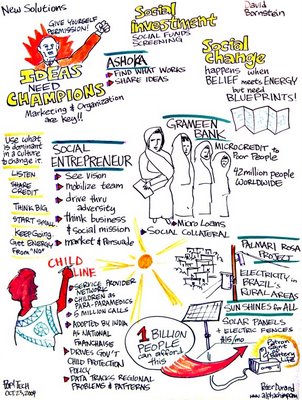 New Solutions
David
Bornstein
GIVE YOURSELF
PERMISSION!
IDEAS
NEED
CHAMPIONS
Marketing & Organization
are key!!
Social
Investment
SOCIAL FUNDS
SCREENING
ASHOKA
FIND WHAT WORKS
SHARE IDEAS
Social
Change
happens when
BELIEF meets ENERGY
but need
BLUEPRINTS!
Use what
is dominant
in a culture
to change it.
LISTEN
SHARE
CREDIT
THINK BIG
START SMALL
Keep Going
Get ENERGY
From "NO"
SOCIAL
ENTREPRENEUR
See vision
mobilize team
drive thru
adversity
think business
& social mission
market & persuade
GRAMEEN
BANK
MICROCREDIT to
Poor People
42 million people
WORLDWIDE
Micro Loans
SOCIAL COLLATERAL
CHILD
LINE
SERVICE PROVIDER
NETWORK
CHILDREN as
PARA-PARAMEDICS
5 MILLION CALLS
ADOPTED BY INDIA
AS NATIONAL
FRANCHAISE
DRIVES GOV'T
CHILD PROTECTION
POLICY
DATA TRACKS REGIONAL
PROBLEMS & PATTERNS
PALMARI ROSA
PROJECT
ELECTRICITY in
BRAZIL'S
RURAL AREAS
SUN SHINES for ALL
SOLAR PANELS
+ ELECTRIC FENCES
$15/mo
1 BILLION
PEOPLE
can afford
this
Patron
Saint
of
Lite
PopTech
Oct 23, 2009
Peter Durand
www.alphachimp.com